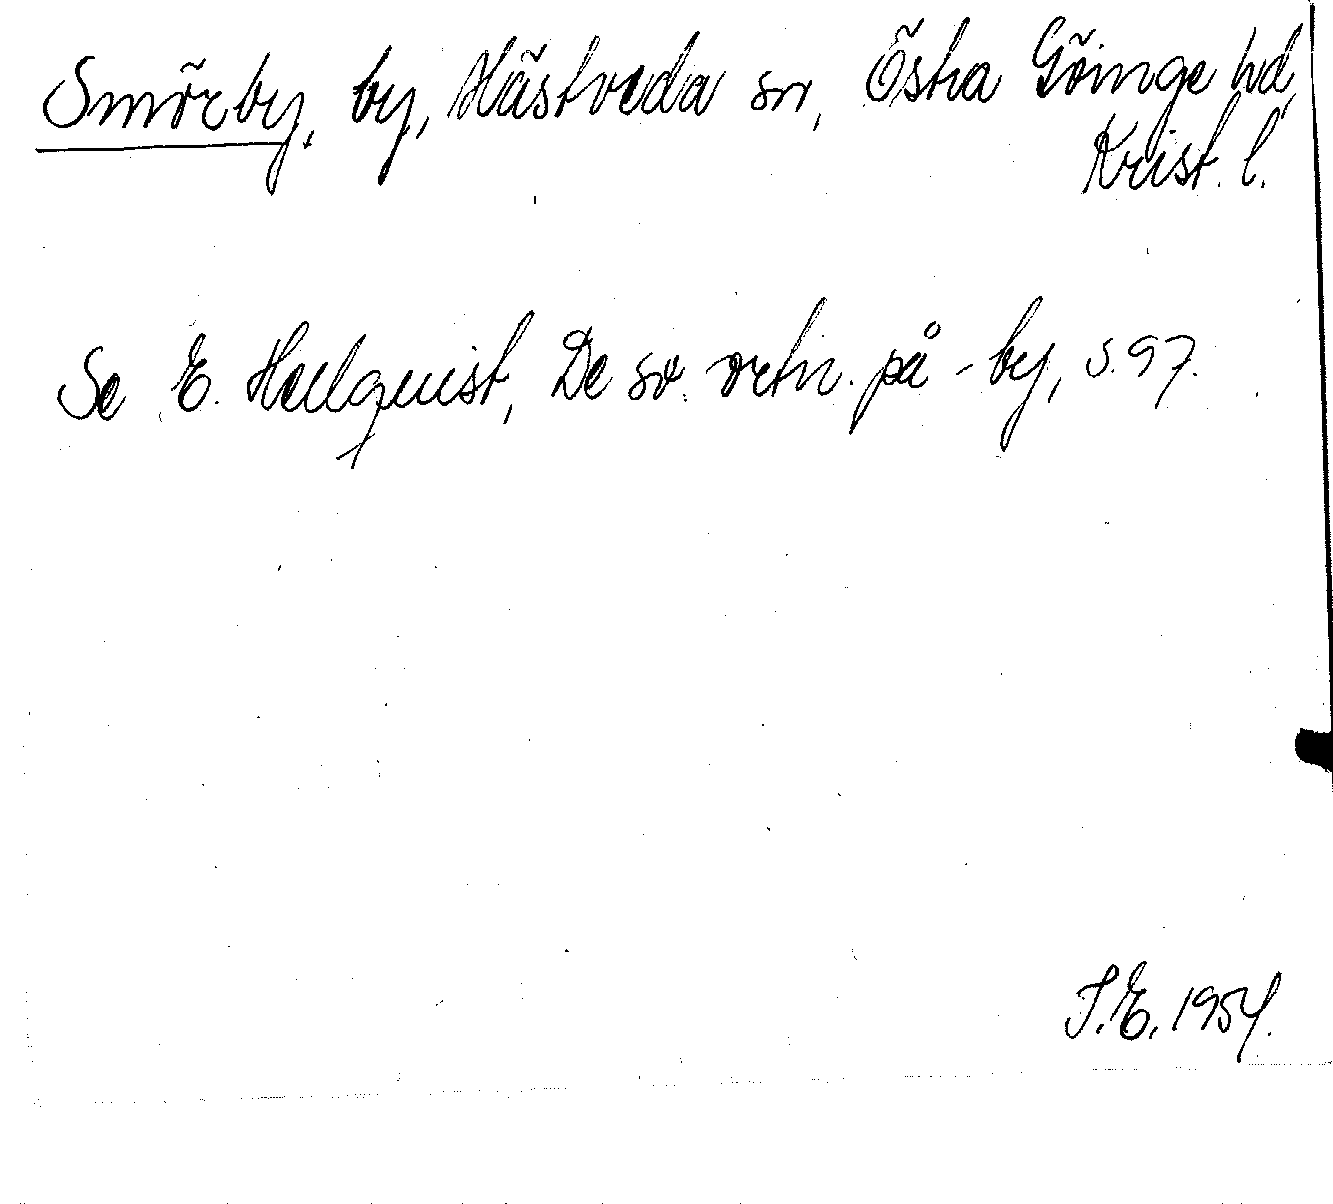 Smörby, by, Hästveda sn, Östra Göinge hd,
Krist. l.
Se E. Hellquist, De sv. ortn. på -by, s. 97.
S.E. 1954.